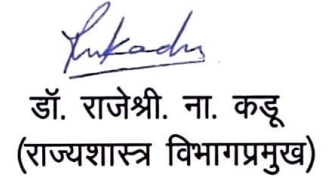 डॉ. राजेश्री. ना. कडू
(राज्यशास्त्र विभागप्रमुख)